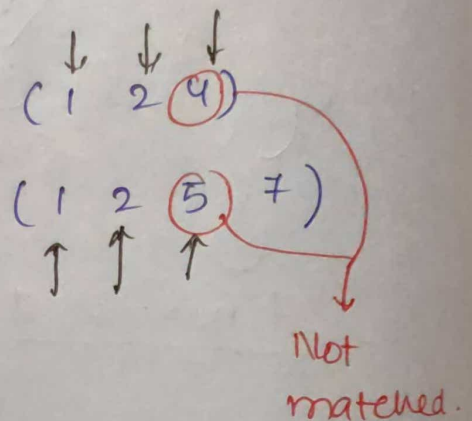 ( 1 2 4 )
( 1 2 5 7 )
Not
matched.